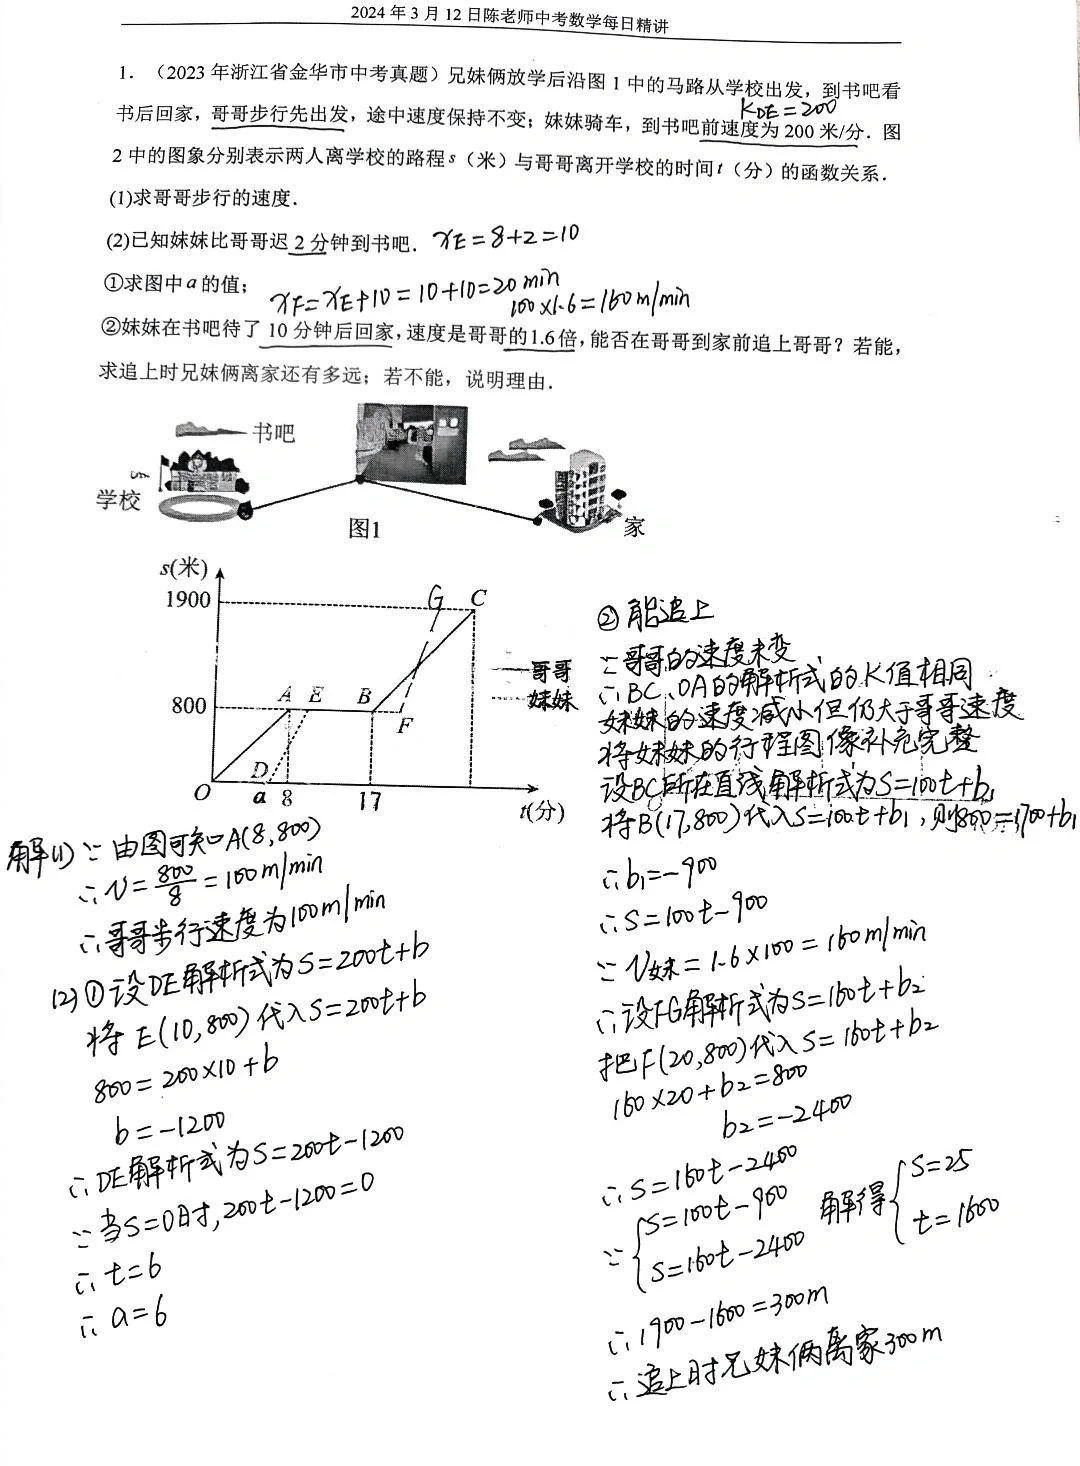 2024年3月12日陈老师中考数学每日精讲
1. （2023年浙江省金华市中考真题）兄妹俩放学后沿图1中的马路从学校出发，到书吧看
K_DE=200
书后回家，哥哥步行先出发，途中速度保持不变；妹妹骑车，到书吧前速度为200米/分．图
2中的图象分别表示两人离学校的路程s（米）与哥哥离开学校的时间t（分）的函数关系．
(1)求哥哥步行的速度．
(2)已知妹妹比哥哥迟2分钟到书吧． x_E=8+2=10
①求图中a的值； x_F=x_E+10=10+10=20min
100×1.6=160m/min
②妹妹在书吧待了10分钟后回家，速度是哥哥的1.6倍，能否在哥哥到家前追上哥哥？若能，
求追上时兄妹俩离家还有多远；若不能，说明理由．
书吧
学校
家
图1
s(米)
1900
G C
哥哥
妹妹
800
A E B
F
D
O a 8 17 t(分)
解(1)∵由图可知A(8,800)
∴v=800/8=100m/min
∴哥哥步行速度为100m/min
(2)①设DE解析式为S=200t+b
将E(10,800)代入S=200t+b
800=200×10+b
b=-1200
∴DE解析式为S=200t-1200
∵当S=0时,200t-1200=0
∴t=6
∴a=6
②能追上
∵哥哥的速度未变
∴BC、OA的解析式的K值相同
妹妹的速度减小但仍大于哥哥速度
将妹妹的行程图像补充完整
设BC所在直线解析式为S=100t+b₁
将B(17,800)代入S=100t+b₁,则800=1700+b₁
∴b₁=-900
∴S=100t-900
∵V妹=1.6×100=160m/min
∴设FG解析式为S=160t+b₂
把F(20,800)代入S=160t+b₂
160×20+b₂=800
b₂=-2400
∴S=160t-2400
∵{S=100t-900 S=160t-2400 解得{S=25 t=1600
∴1900-1600=300m
∴追上时兄妹俩离家300m